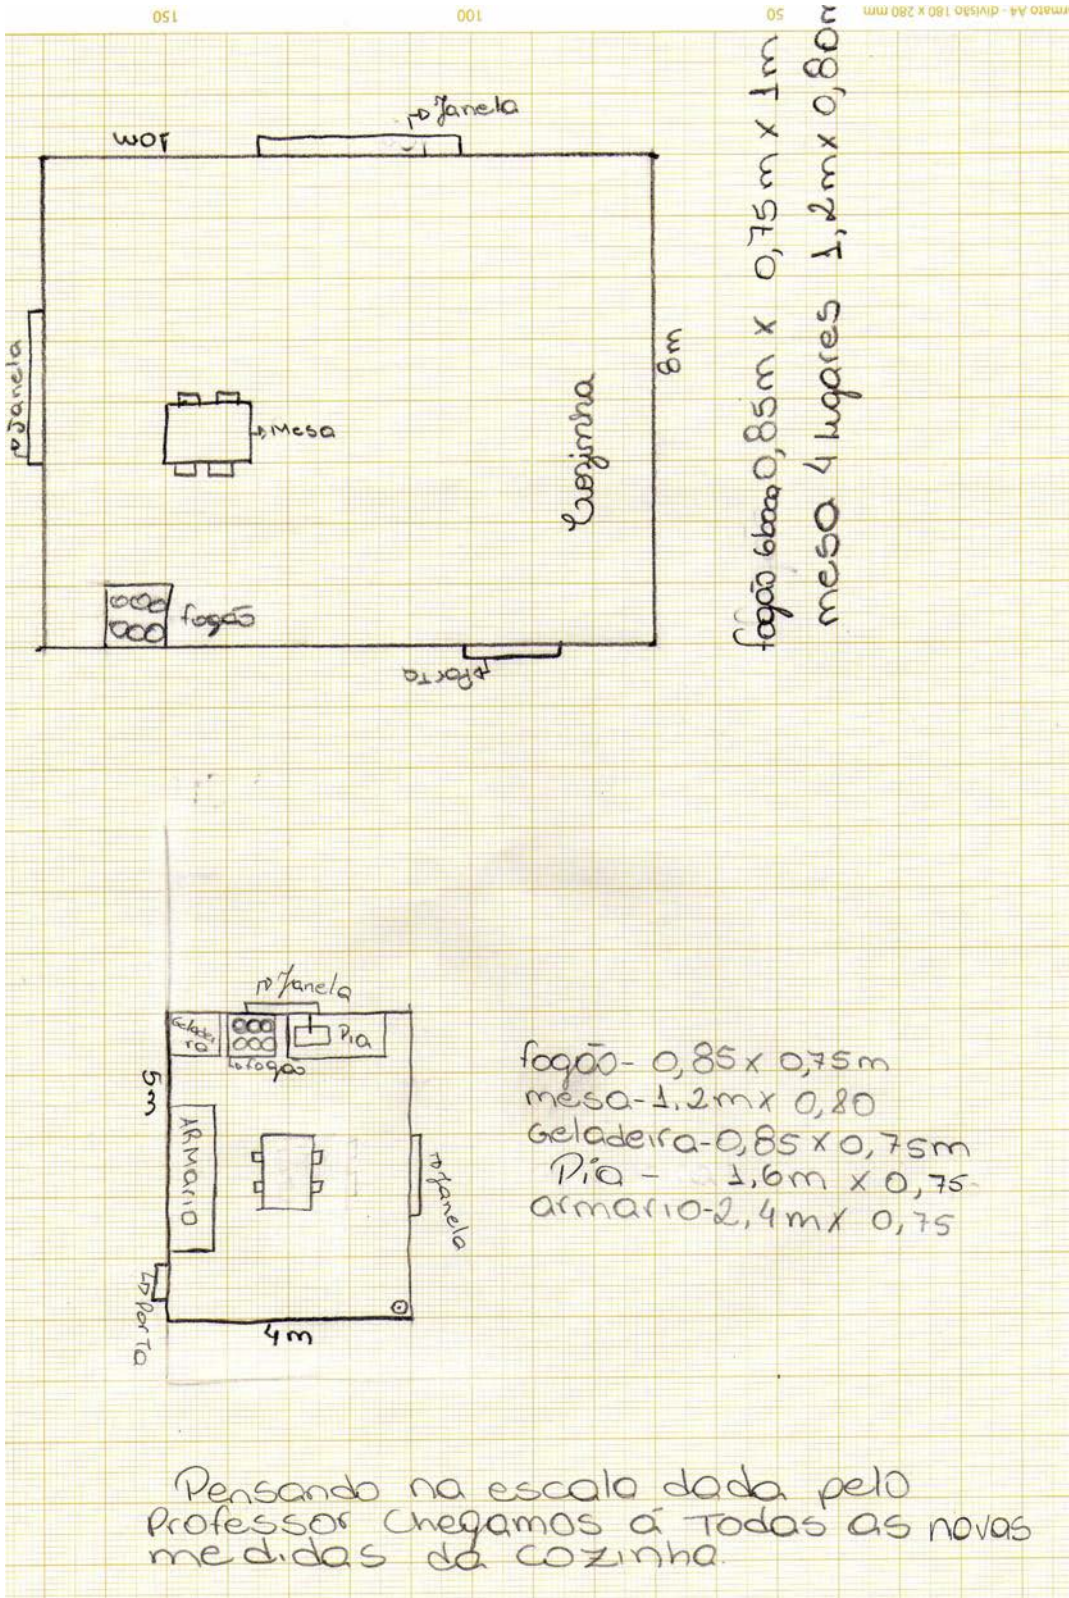 150
100
50
rmato A4 - divisão 180 x 280 mm
Janela
10m
Janela
Mesa
fogão
Cozinha
8m
Porta
fogão 6bocas 0,85m x 0,75m x 1m
mesa 4 lugares 1,2m x 0,80m
Janela
Geladeira
fogão
Pia
5m
ARMARIO
Janela
Porta
4m
fogão - 0,85 x 0,75m
mesa - 1.2m x 0,80
Geladeira - 0,85 x 0,75m
Pia - 1,6m x 0,75
armario - 2,4m x 0,75
Pensando na escala dada pelo
Professor chegamos á Todas as novas
medidas da cozinha.